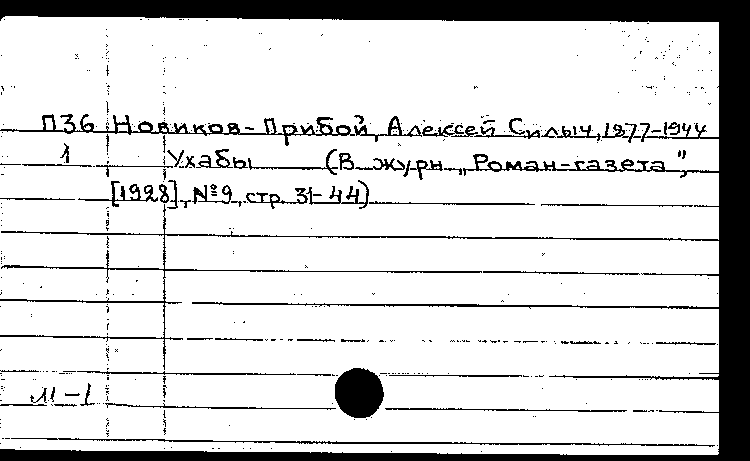 П36 Новиков-Прибой, Алексей Силыч, 1877-1944
1 Ухабы (В журн. „Роман-газета",
[1928], №9, стр. 31-44)
М-1